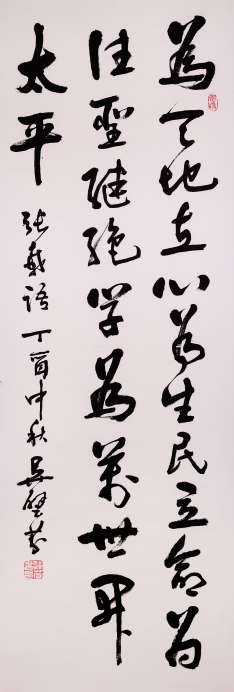 為天地立心為生民立命為
往聖繼絕学為萬世開
太平
張載語丁酉中秋